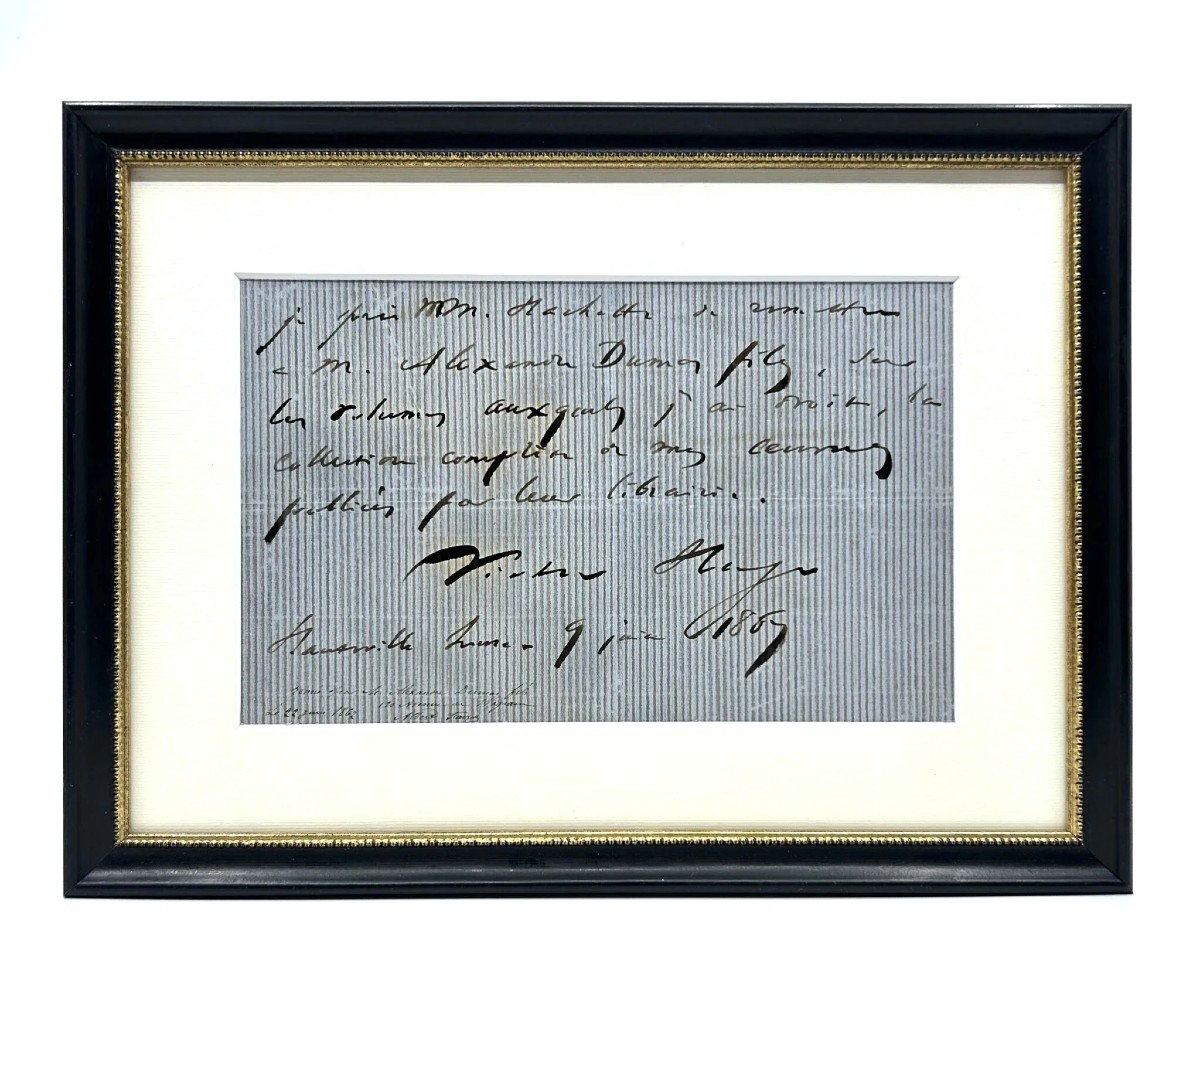 je prie MM. Hachette de remettre
à M. Alexandre Dumas fils, sur
les volumes auxquels j'ai droit, la
collection complète de mes œuvres
publiées par leur librairie.
Victor Hugo
Hauteville house. 9 juin 1867
Dumas fils
le 22 juin 1867